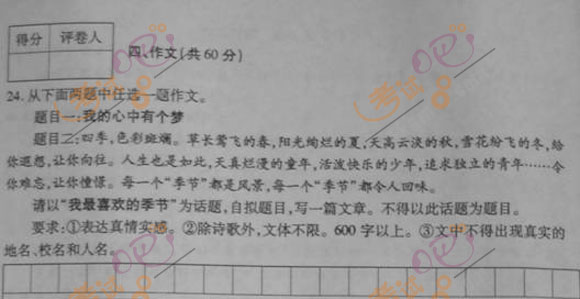 得分 评卷人
四、作文(共60分)
24.从下面两题中任选一题作文。
题目一:我的心中有个梦
题目二:四季,色彩斑斓。草长莺飞的春,阳光绚烂的夏,天高云淡的秋,雪花纷飞的冬,给
你遐想,让你向往。人生也是如此,天真烂漫的童年,活泼快乐的少年,追求独立的青年……令
你难忘,让你憧憬。每一个“季节”都是风景,每一个“季节”都令人回味。
请以“我最喜欢的季节”为话题,自拟题目,写一篇文章。不得以此话题为题目。
要求:①表达真情实感。②除诗歌外,文体不限。600字以上。③文中不得出现真实的
地名、校名和人名。
考试吧
考试吧
考试吧
考试吧